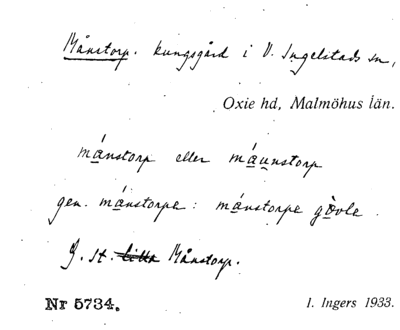 Månstorp. kungsgård i V. Ingelstads sn,
Oxie hd, Malmöhus län.
mánstorp eller máunstorp
gen. mánstorpa: mánstorpa gòvla
J. st. Månstorp.
Nr 5734.
I. Ingers 1933.